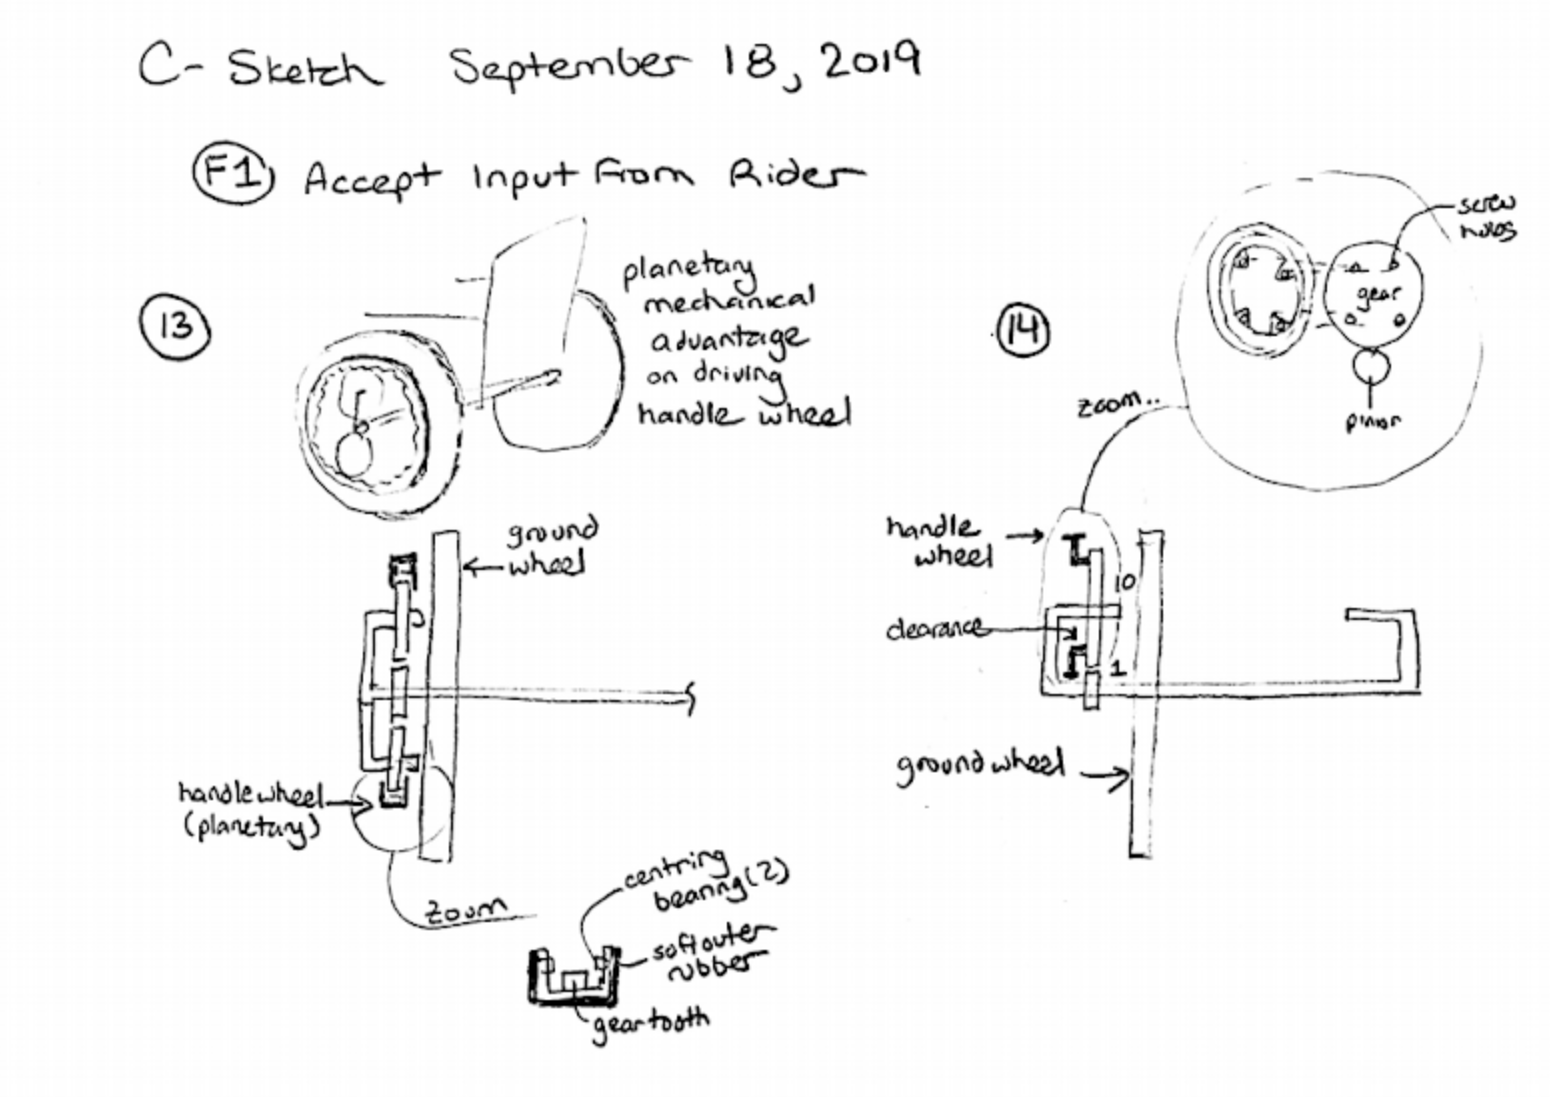 C- Sketch September 18, 2019
F1 Accept Input From Rider
13
planetary
mechanical
advantage
on driving
handle wheel
ground
wheel
handle wheel
(planetary)
zoom
centring
bearing (2)
soft outer
rubber
gear tooth
14
screw
holes
gear
pinion
zoom..
handle
wheel
10
clearance
1
ground wheel